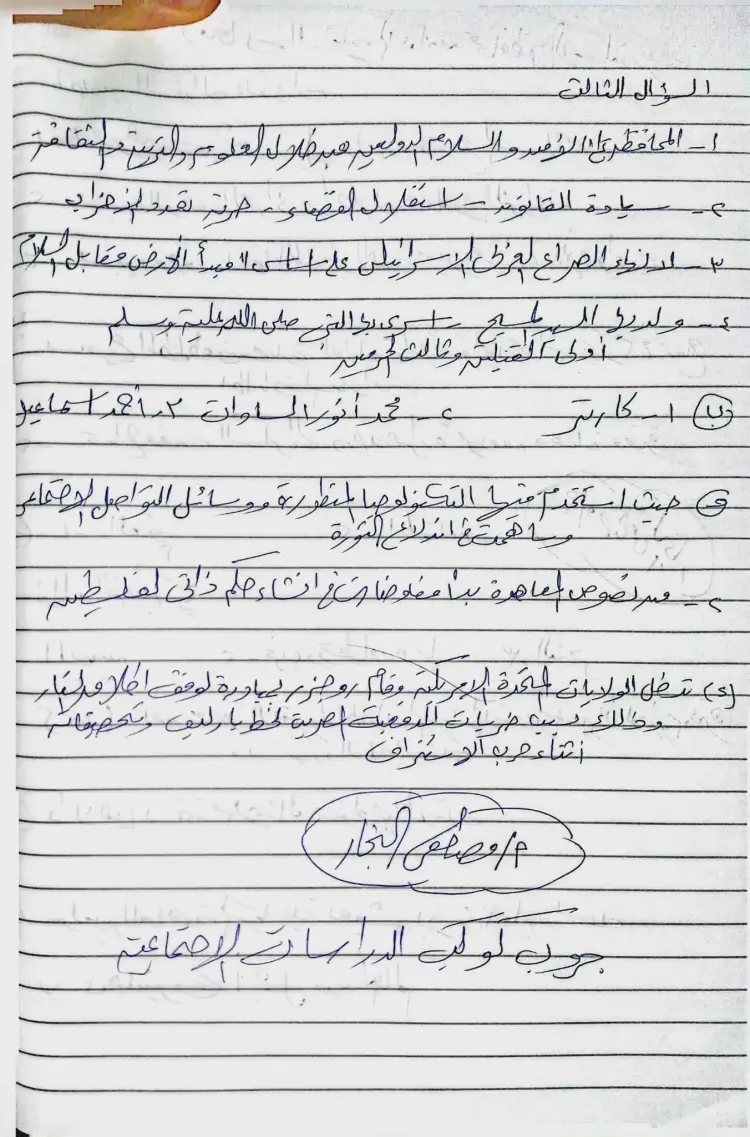 السؤال الثالث
١- المحافظة على الأمن والسلام الدوليين من خلال العلوم والتربية والثقافة
٢- سيادة القانون - استقلال القضاء - حرية تعدد الأحزاب
٣- لانهاء الصراع العربى الاسرائيلى على اساس مبدأ الأرض مقابل السلام
٤- ولد بها المسيح - اسرى بها النبى صلى الله علية وسلم
أولى القبلتين وثالث الحرمين
(ب) ١- كارتر ٢- محمد أنور السادات ٣- أحمد اسماعيل
(ج) حيث استخدم فيها التكنولوجيا المتطورة ووسائل التواصل الاجتماعى
وساهمت فى اندلاع الثورة
٢- من نصوص المعاهدة بدأ مفاوضات فى انشاء حكم ذاتى لفلسطين
(د) تدخل الولايات المتحدة الامريكية وقام روجرز بمبادرة لوقف اطلاق النار
وذالك بسبب ضربات المدفعية المصرية لخط بارليف وتحصيناته
أثناء حرب الاستنزاف
م/ مصطفى النجار
جروب كوكب الدراسات الاجتماعية